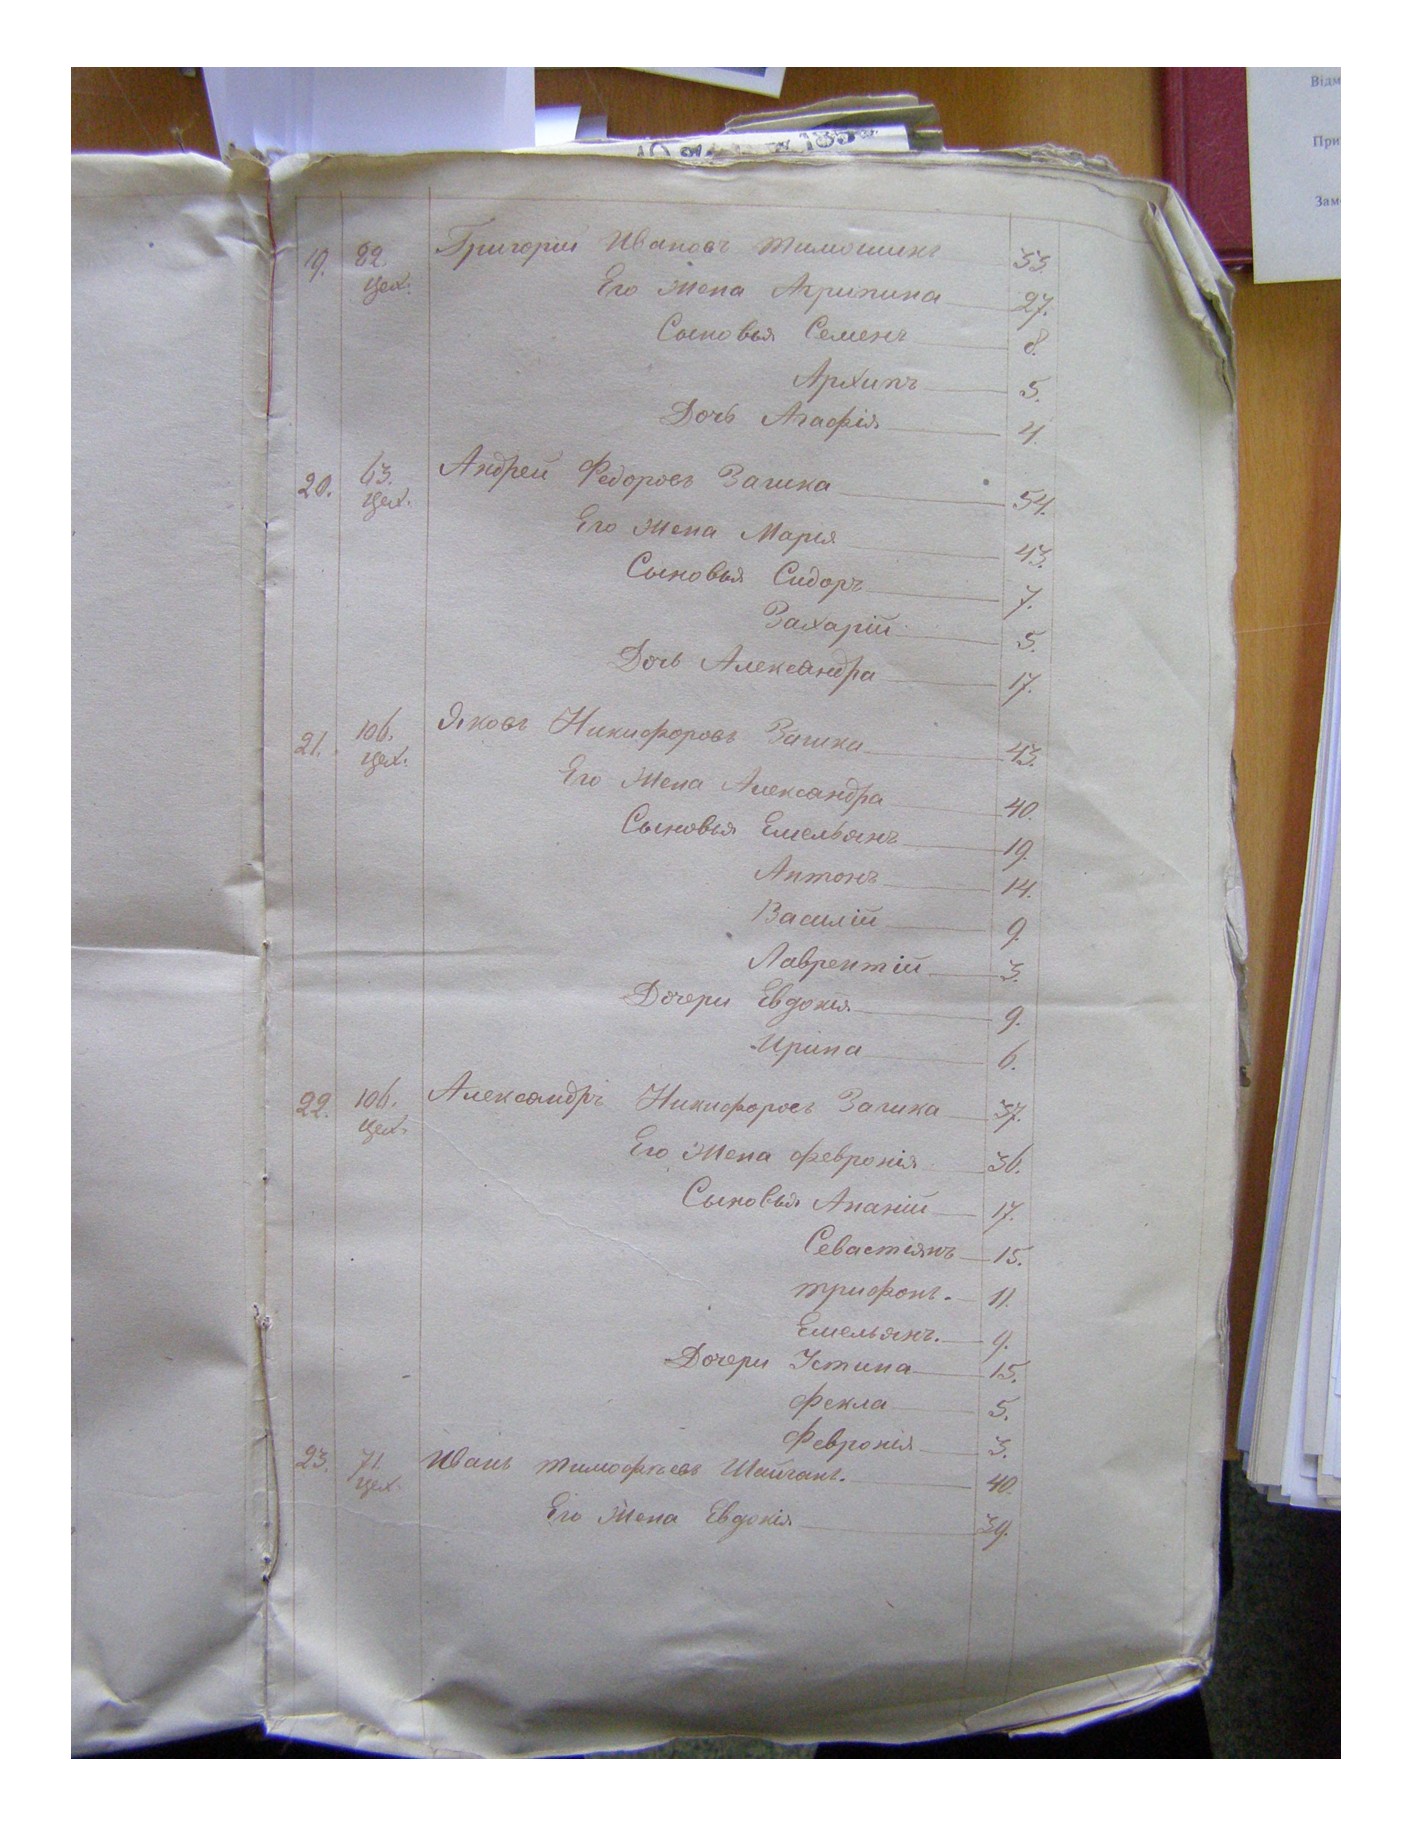 Відм
При
Зам
185
19. 82 Григорий Ивановъ Тимошикъ 33.
цех. Его Жена Агрипина 27.
Сыновья Семенъ 8.
Архипъ 5.
Дочь Агафія 4.
20. 63. Андрей Федоровъ Заика 54.
цех. Его Жена Марія 43.
Сыновья Сидоръ 7.
Захарій 5.
Дочь Александра 17.
21. 106. Яковъ Никифоровъ 43.
цех. Его Жена Александра 40.
Сыновья Емельянъ 19.
Антонъ 14.
Василій 9.
Лаврентій 3.
Дочери Евдокія 9.
Ирина 6.
22. 106. Александръ Никифоровъ 37.
цех. Его Жена Февронія 36.
Сыновья Ананій 17.
Севастіянъ 15.
Трифонъ. 11.
Емельянъ. 9.
Дочери Устина 15.
Фекла 5.
Февронія 3.
23. 71. Иванъ Тимофѣевъ 40.
цех. Его Жена Евдокія 39.